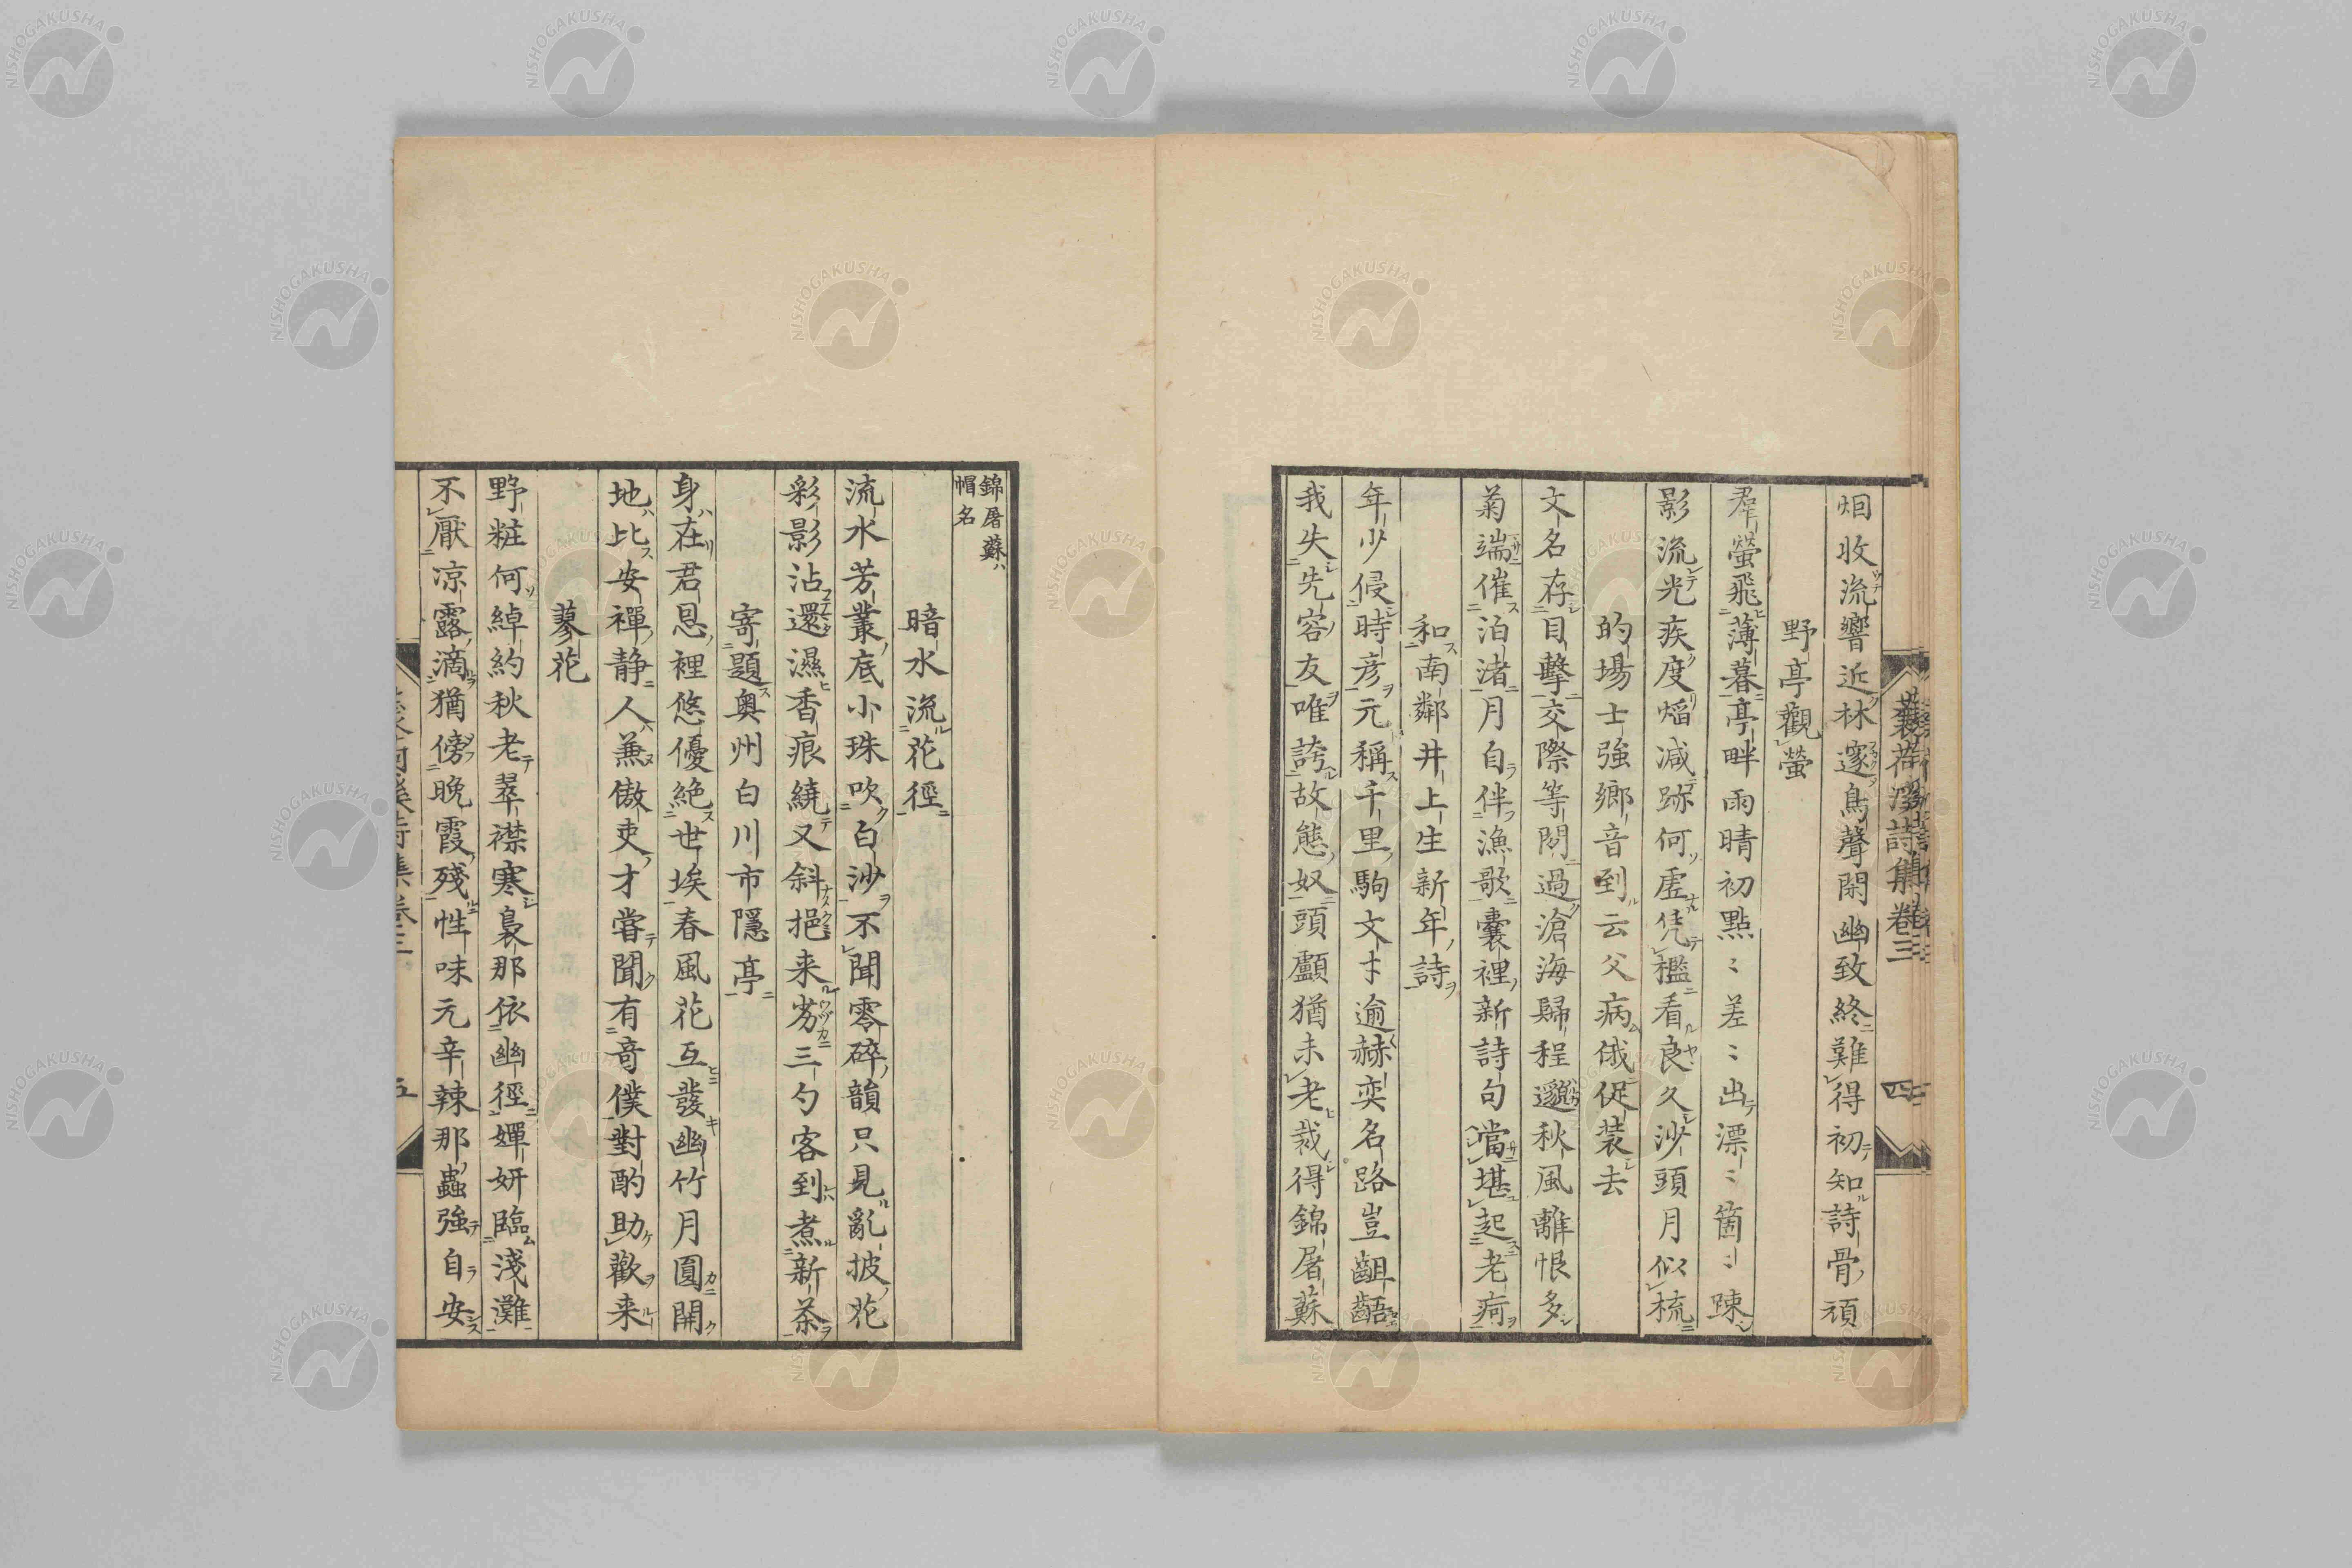 烟收流響近林邃鳥聲閑幽致終難得初知詩骨頑
野亭觀螢
羣螢飛薄暮亭畔雨晴初點〻差〻出漂〻箇〻踈
影流光疾度熖減跡何虛凭檻看良久沙頭月似梳
的場士強鄉音到云父病俄促装去
文名存目擊交際等閑過滄海歸程邈秋風離恨多
菊端催泊渚月自伴漁歌囊裡新詩句當堪起老痾
和南鄰井上生新年詩
年少侵時彥元稱千里駒文才逾赫奕名路豈齟齬
我失先容友唯誇故態奴頭顱猶未老裁得錦屠蘇
詩集卷三
四
錦屠蘇ハ
帽名
暗水流花徑
流水芳叢底小珠吹白沙不聞零碎韻只見亂披花
彩影沾還濕香痕繞又斜挹来劣三勺客到煮新茶
寄題奥州白川市隱亭
身在君恩裡悠優絶世埃春風花互發幽竹月圓開
地比安禪静人兼傲吏才嘗聞有竒僕對酌助歡来
蓼花
野粧何綽約秋老翠襟寒裊那依幽徑嬋妍臨淺灘
不厭凉露滴猶傍晚霞殘性味元辛辣那蟲強自安
五